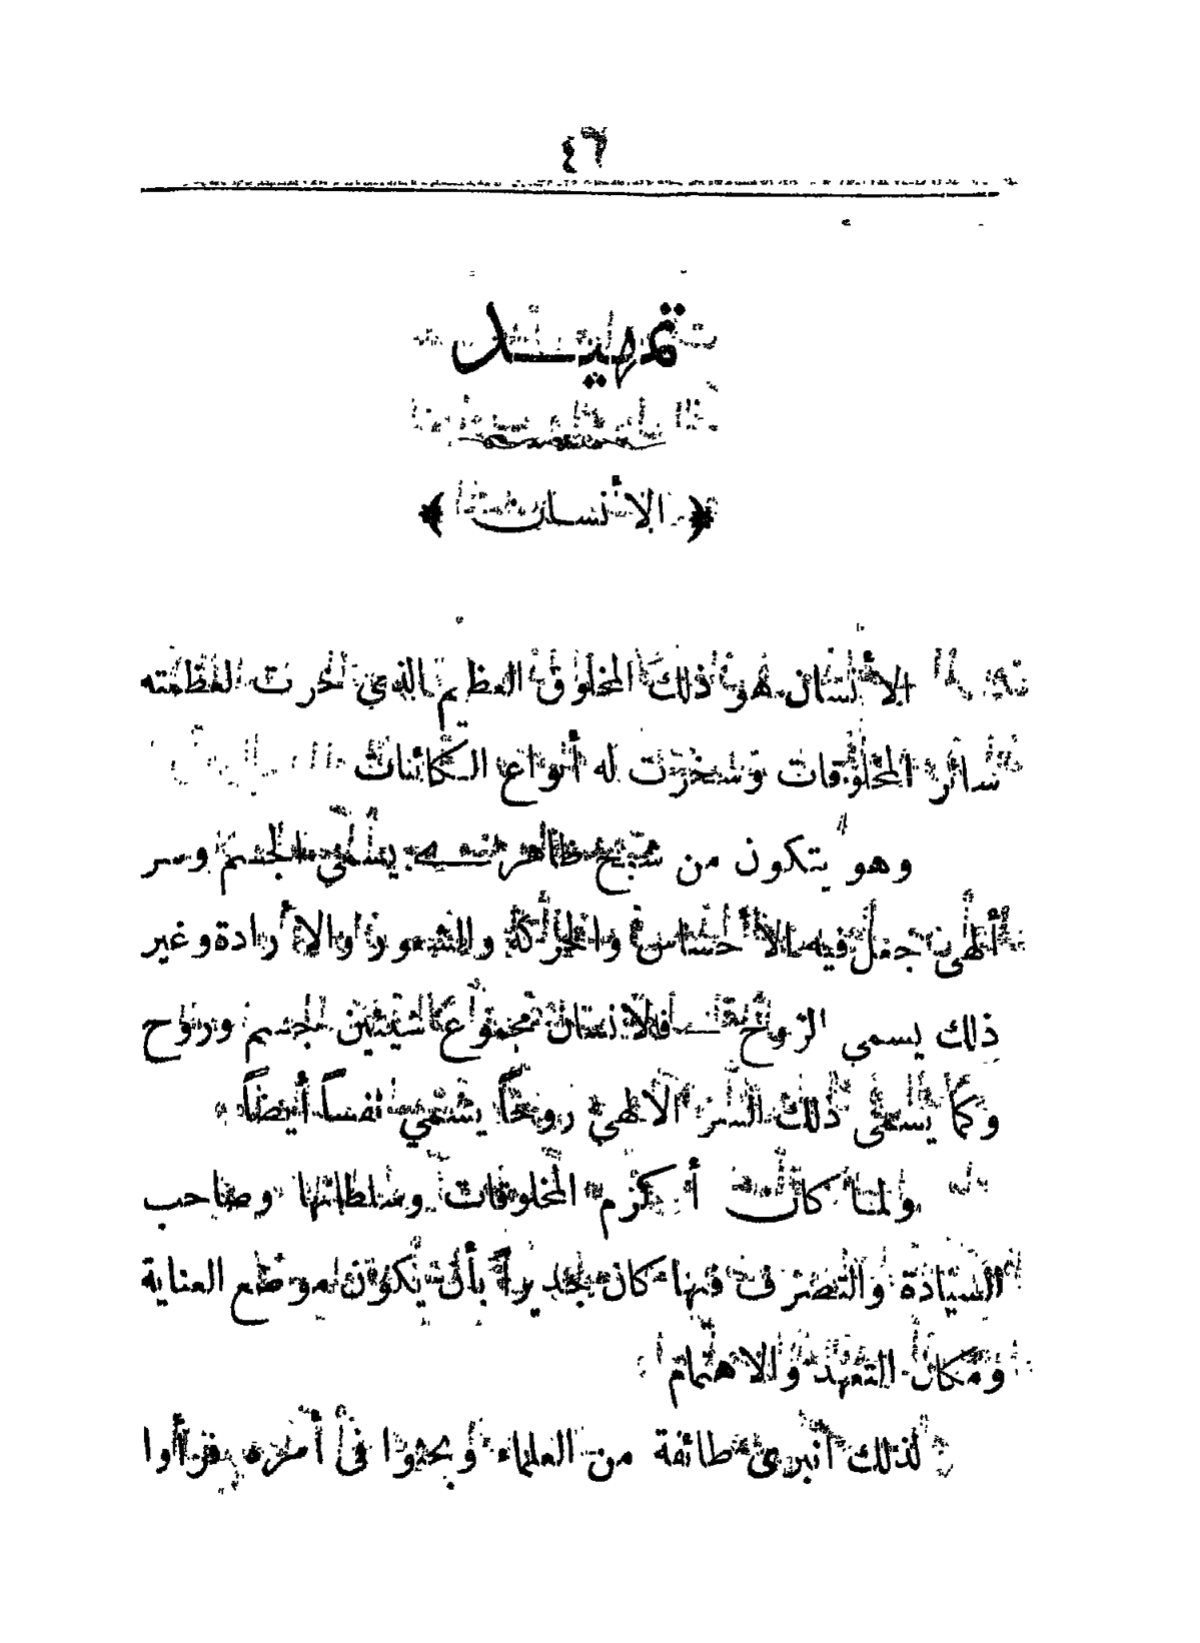 ٤٦
تمهيـــد
﴿ الأنسان ﴾
الأنسان هو ذلك المخلوق العظيم الذي خرت لعظمته
سائر المخلوقات وسخرت له أنواع الكائنات
وهو يتكون من شبح ظاهر يسمى الجسم وسر
ألهي جعل فيه الأحساس والحركة والشعور والأرادة وغير
ذلك يسمي الروح فالانسان مجموع شيئين جسم وروح
وكما يسمى ذلك السر الالهي روحاً يسمي نفساً أيضاً
ولما كان أكرم المخلوقات وسلطانها وصاحب
السيادة والتصرف فيها كان جديراً بأن يكون موضع العناية
ومكان التعهد والاهتمام
لذلك انبرى طائفة من العلماء وبحثوا فى أمره فرأوا